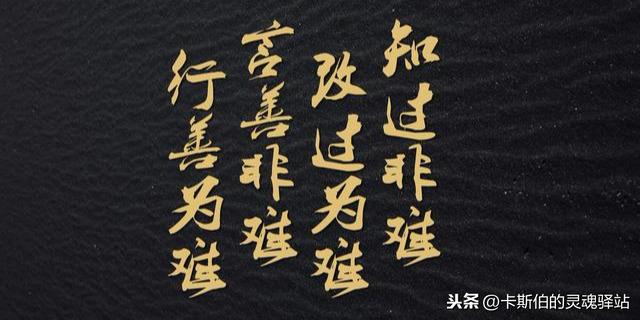 知过非难
改过为难
言善非难
行善为难
头条@卡斯伯的灵魂驿站